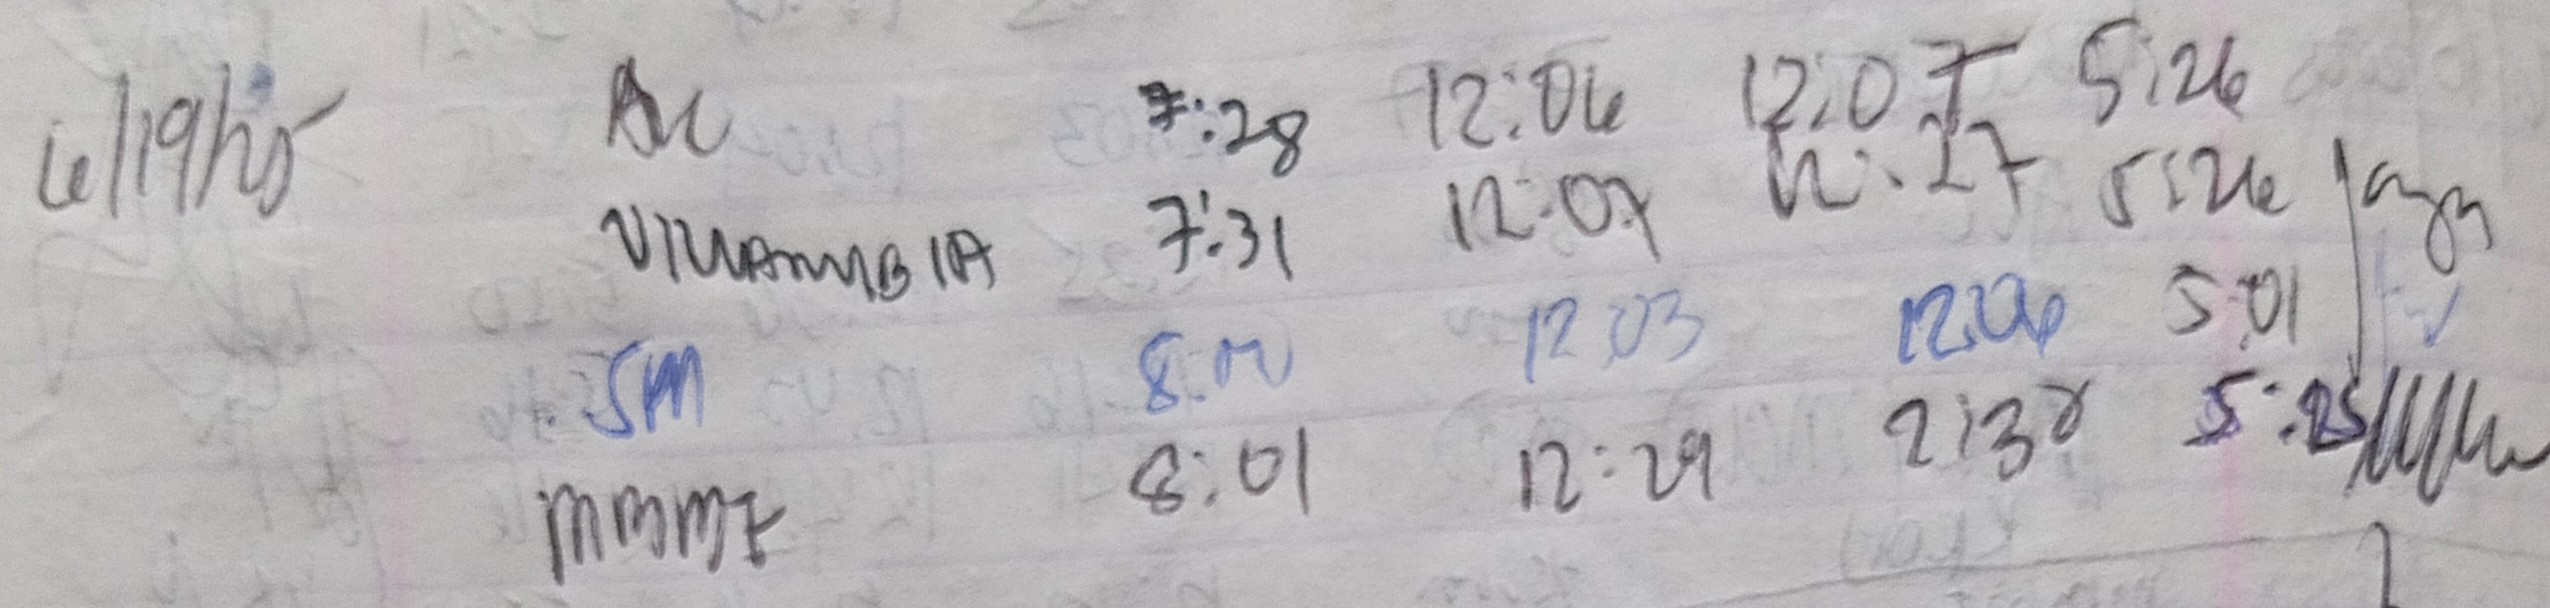 6/19/25 AC 7:28 12:06 12:07 5:26
7:31 12:07 12:27 5:26
SM 8:00 12:03 12:06 5:01
8:01 12:29 2:38 5:25